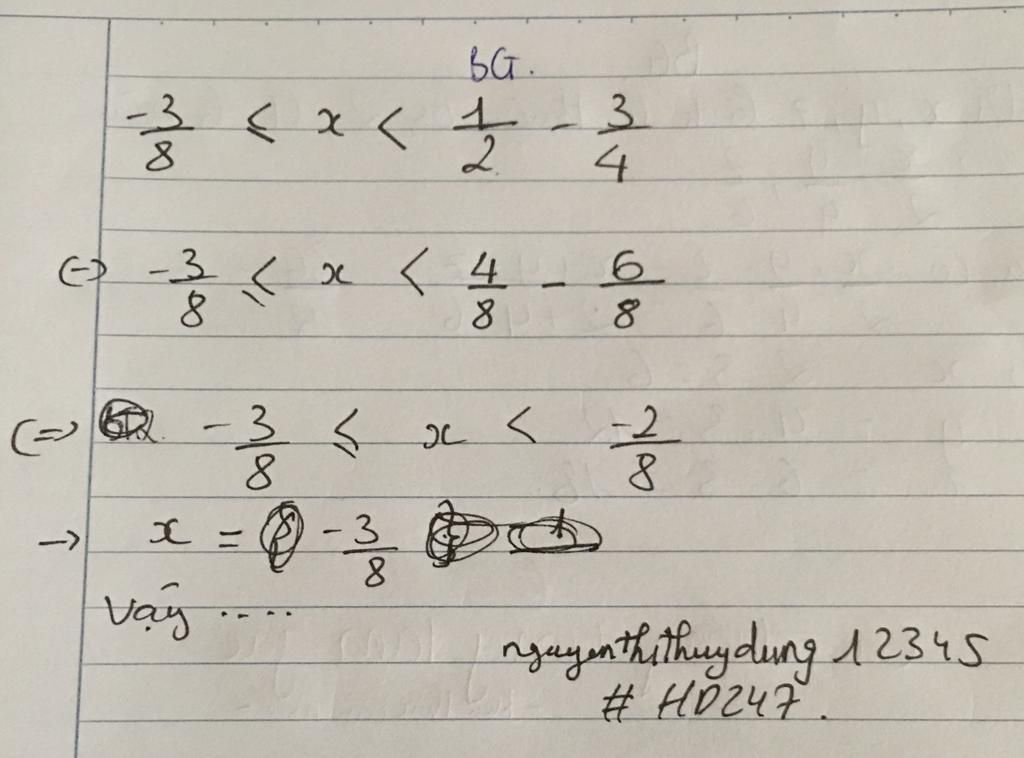 BG.
-3/8 ≤ x < 1/2 - 3/4
(-) -3/8 ≤ x < 4/8 - 6/8
(=) -3/8 ≤ x < -2/8
→ x = -3/8
Vậy ....
nguyenthithuydung 12345
# HD247.